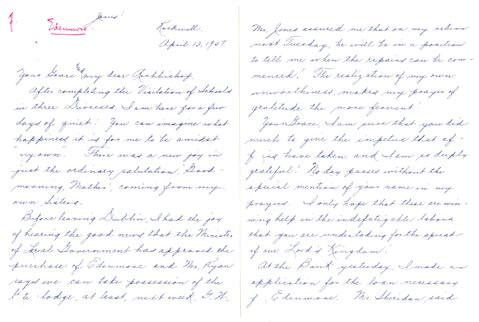 Edenmore
Jesus!
Rockwell.
April 13, 1957.
Your Grace, my dear Archbishop,
After completing the Visitation of Schools
in three Dioceses, I am here for a few
days of quiet! You can imagine what
happiness it is for me to be amidst
"my own". There was a new joy in
just the ordinary salutation, "Good-
morning, Mother", coming from my
own Sisters.
Before leaving Dublin, I had the joy
of hearing the good news that the Minister
of Local Government has approved the
purchase of Edenmore and Mr. Ryan
says we can take possession of the
lodge, at least, next week. G.W.
Mr. Jones assured me that on my return
next Tuesday, he will be in a position
to tell me when the repairs can be com-
menced! The realization of my own
unworthiness makes my prayer of
gratitude the more fervent!
Your Grace, I am sure that you did
much to give the impetus that
have taken and I am so deeply
grateful! No day passes without the
special mention of your name in my
prayers. I only hope that these are win-
ning help in the indefatigable labors
that you are undertaking for the spread
of our Lord's Kingdom.
At the Bank yesterday, I made an
application for the loan necessary
for Edenmore. Mr. Sheridan said